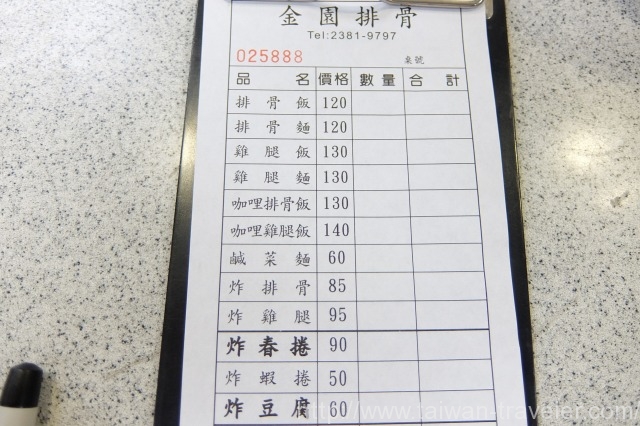 金園排骨
Tel:2381-9797
025888 桌號
品名 價格 數量 合計
排骨飯 120
排骨麵 120
雞腿飯 130
雞腿麵 130
咖哩排骨飯 130
咖哩雞腿飯 140
鹹菜麵 60
炸排骨 85
炸雞腿 95
炸春捲 90
炸蝦捲 50
炸豆腐 60
http://www.taiwan-traveler.com/